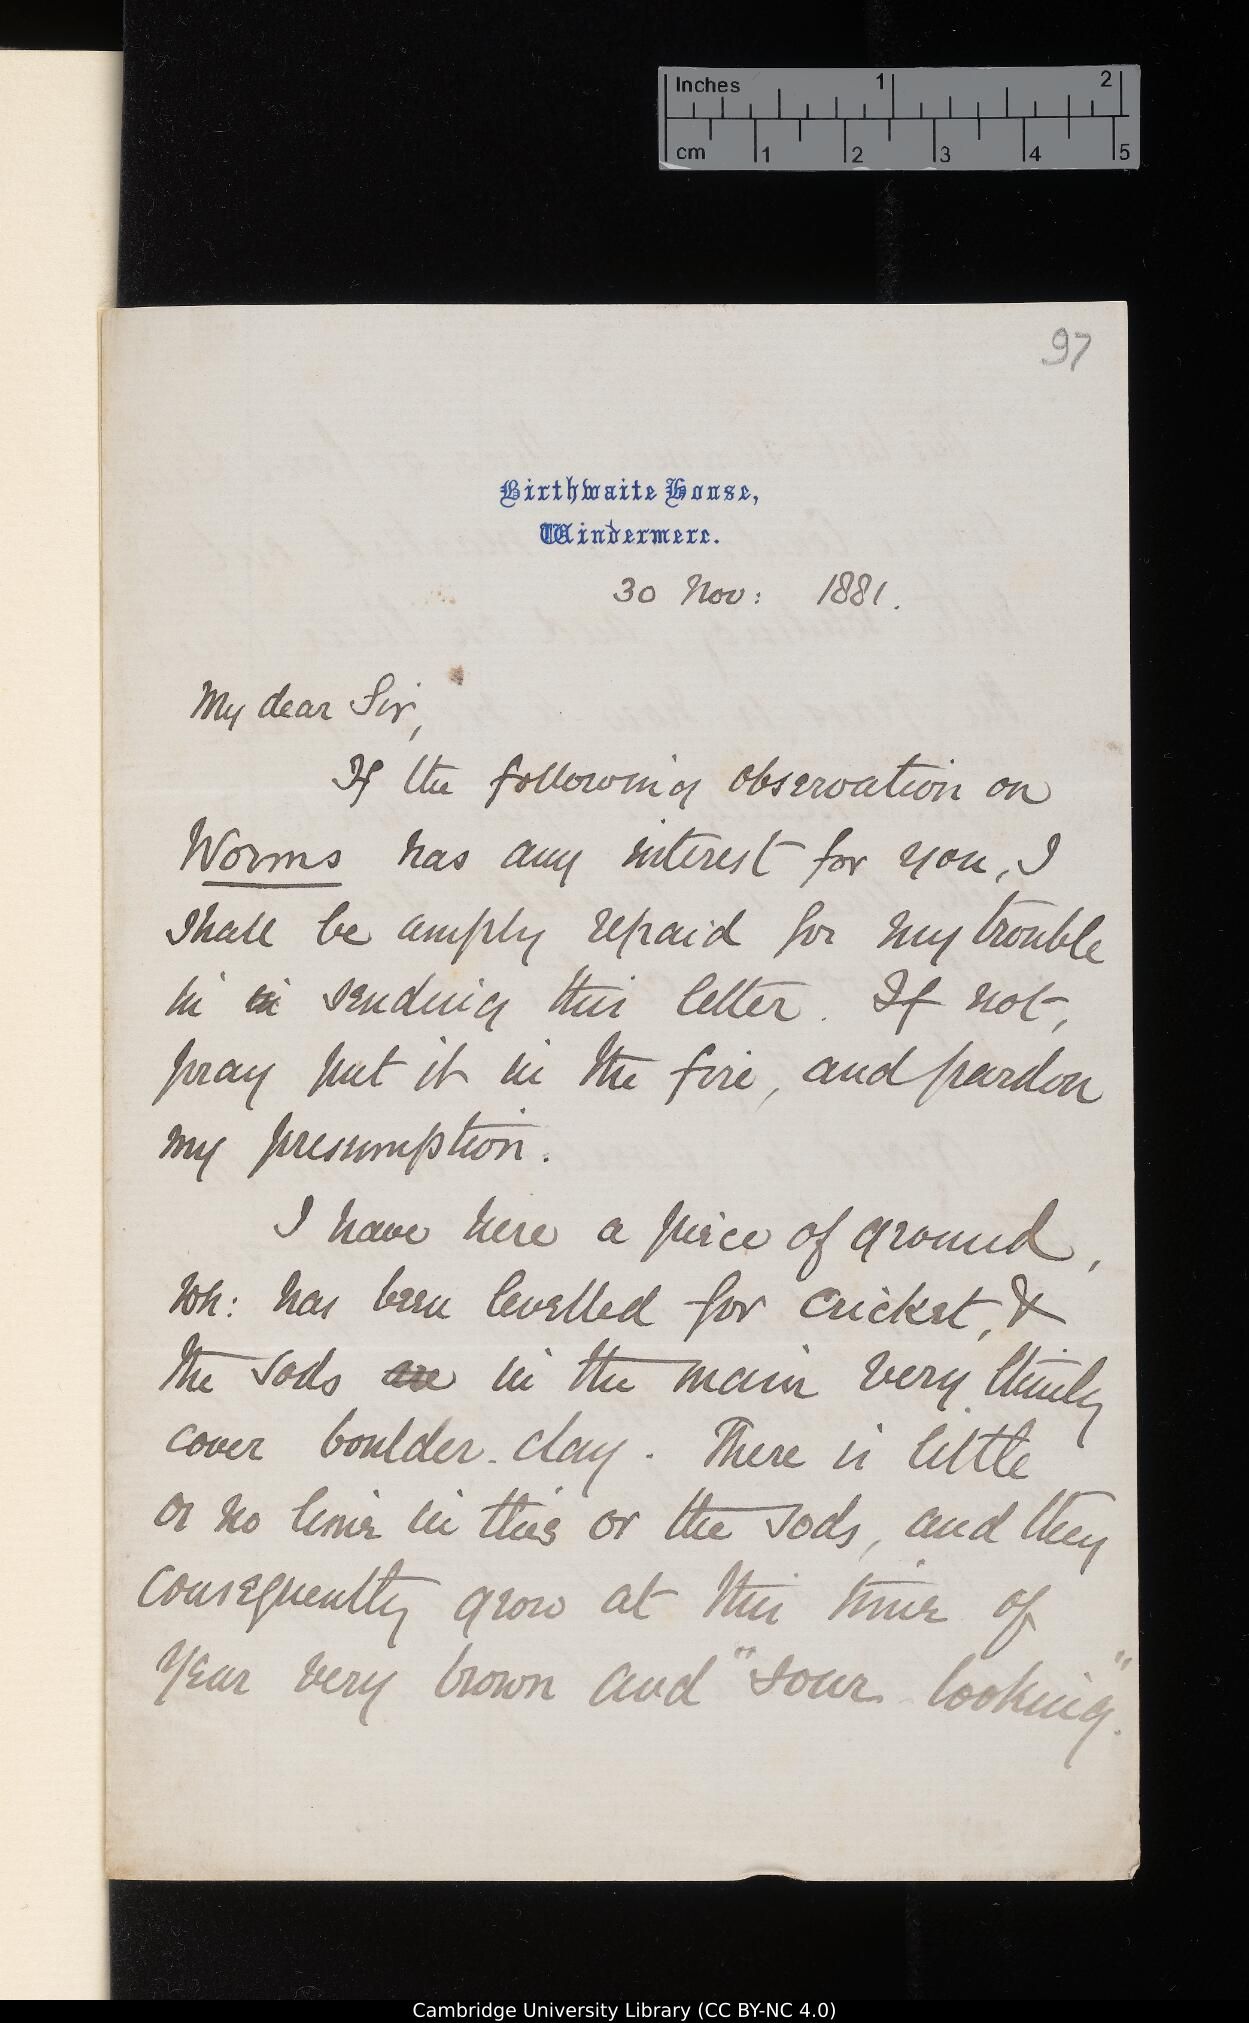 Inches 1 2
cm 1 2 3 4 5
97
Birthwaite House,
Windermere.
30 Nov: 1881.
My dear Sir,
If the following observation on
Worms has any interest for you, I
shall be amply repaid for my trouble
in in sending this letter. If not,
pray put it in the fire, and pardon
my presumption.
I have here a piece of ground,
wh: has been levelled for cricket, &
the sods are in the main very thinly
cover boulder-clay. There is little
or no lime in this or the sods, and they
consequently grow at this time of
year very brown and "sour looking".
Cambridge University Library (CC BY-NC 4.0)